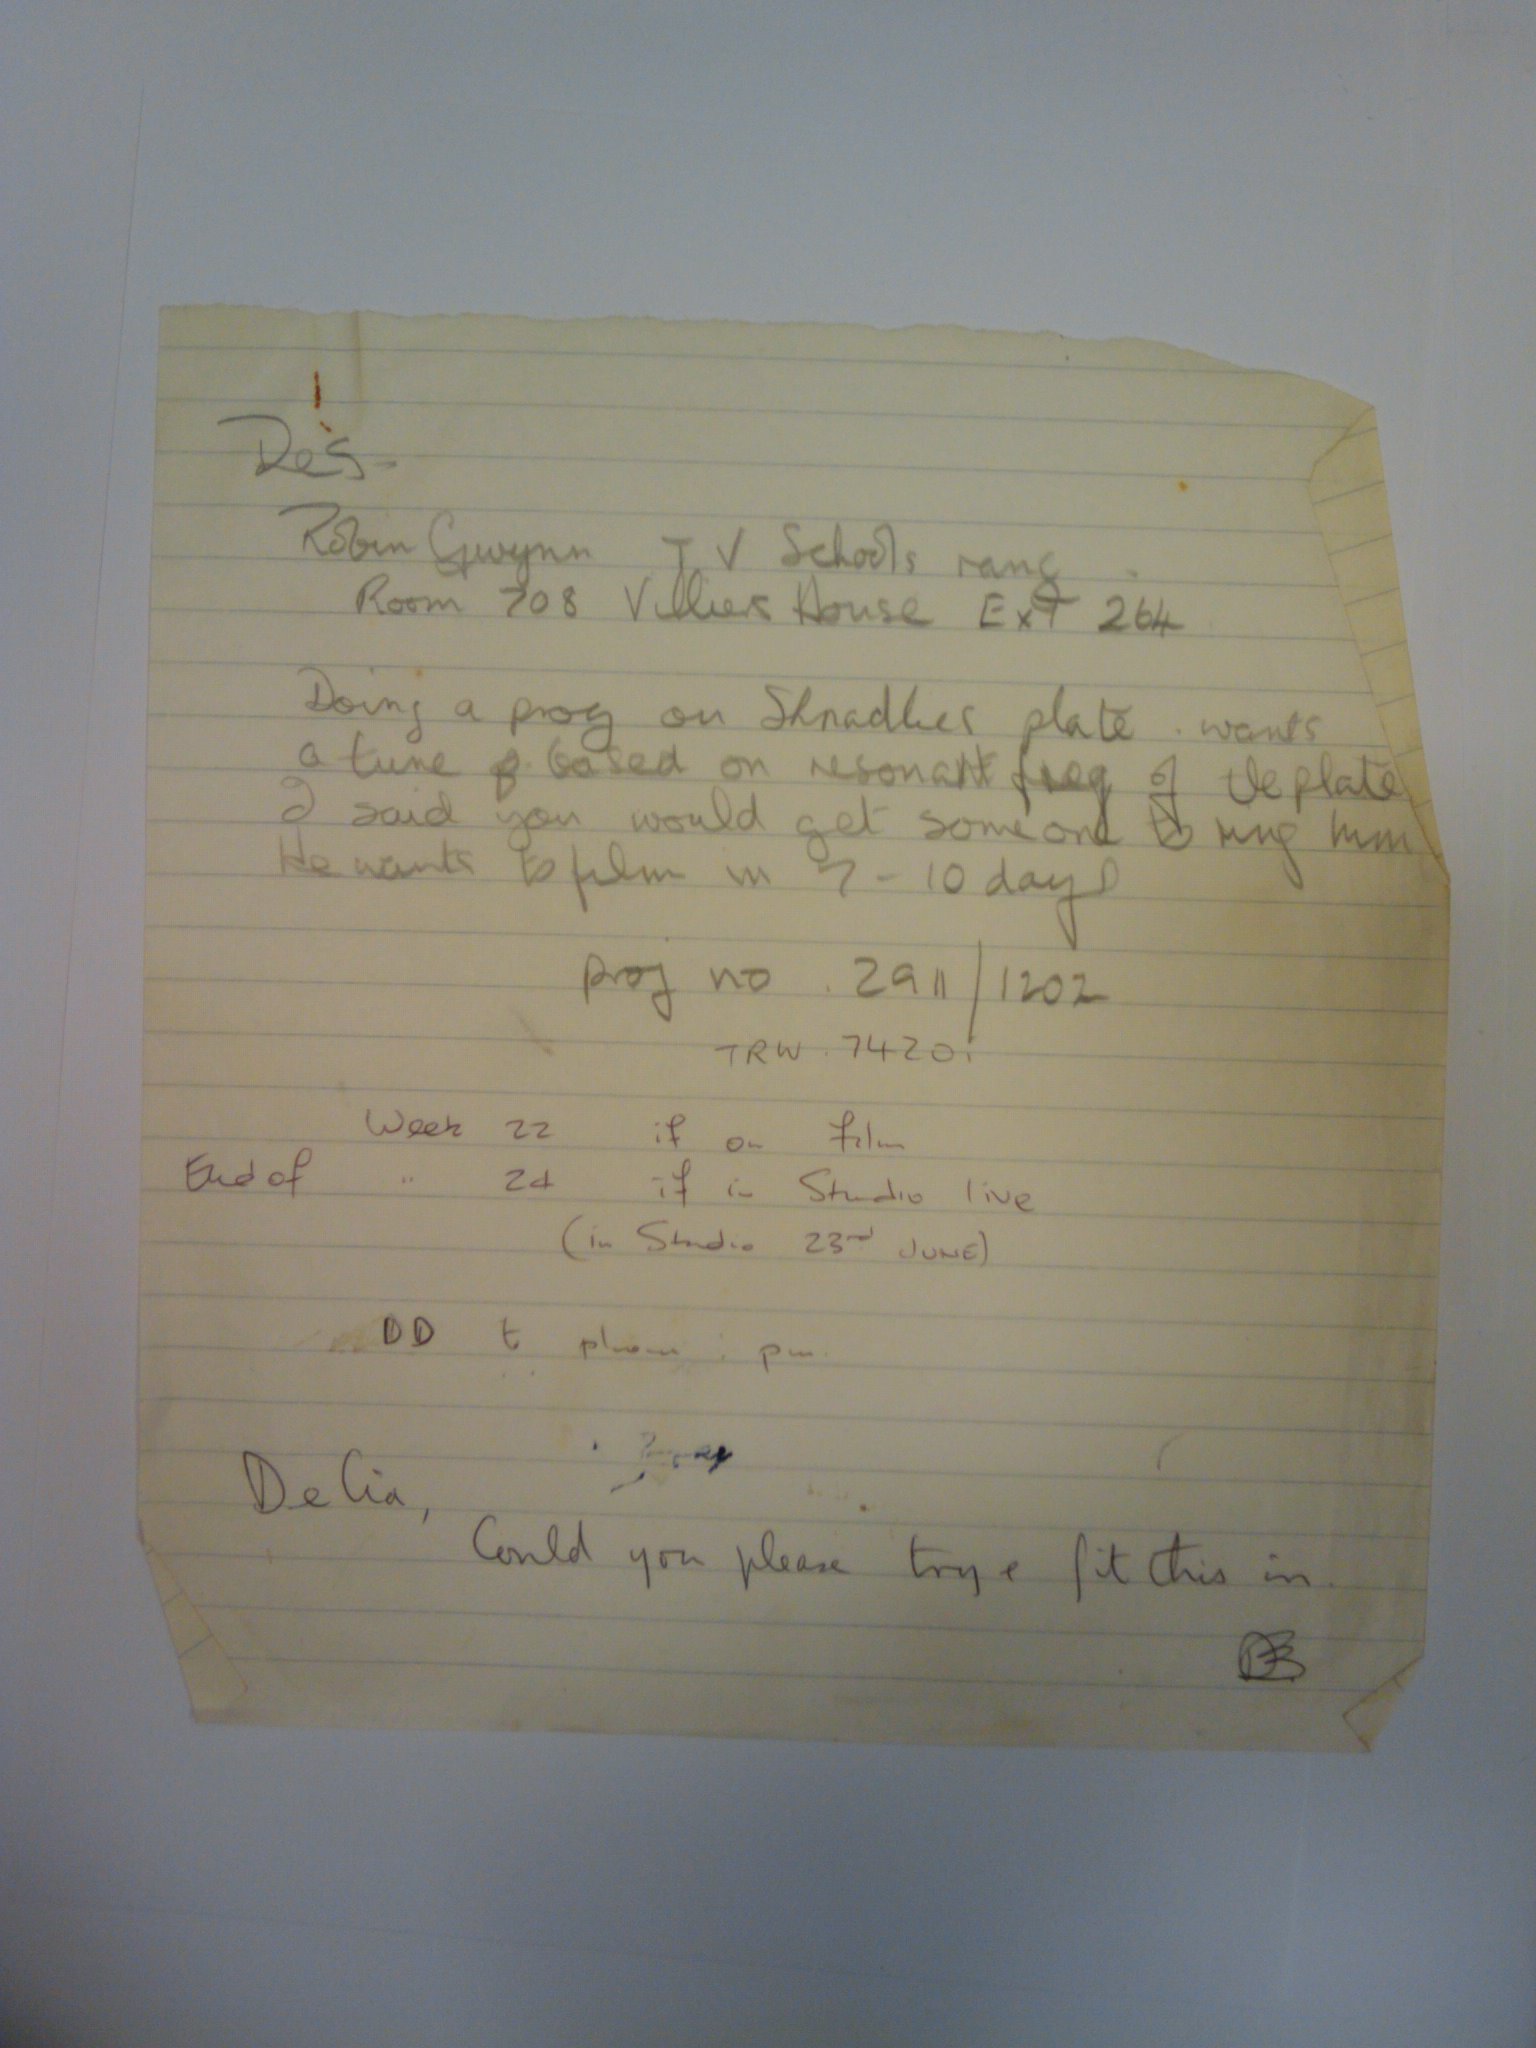 Des -
Robin Gwynn TV Schools rang.
Room 708 Villiers House Ext 264
Doing a prog on Shnadlies plate. wants
a tune based on resonant freq of the plate
I said you would get someone to ring him
He wants to film in 7-10 days
proj no. 2911/1202
TRW. 7420
Week 22 if on film
End of " 24 if in Studio live
(in Studio 23rd JUNE)
DD to phone pm.
Delia,
Could you please try & fit this in.
DB